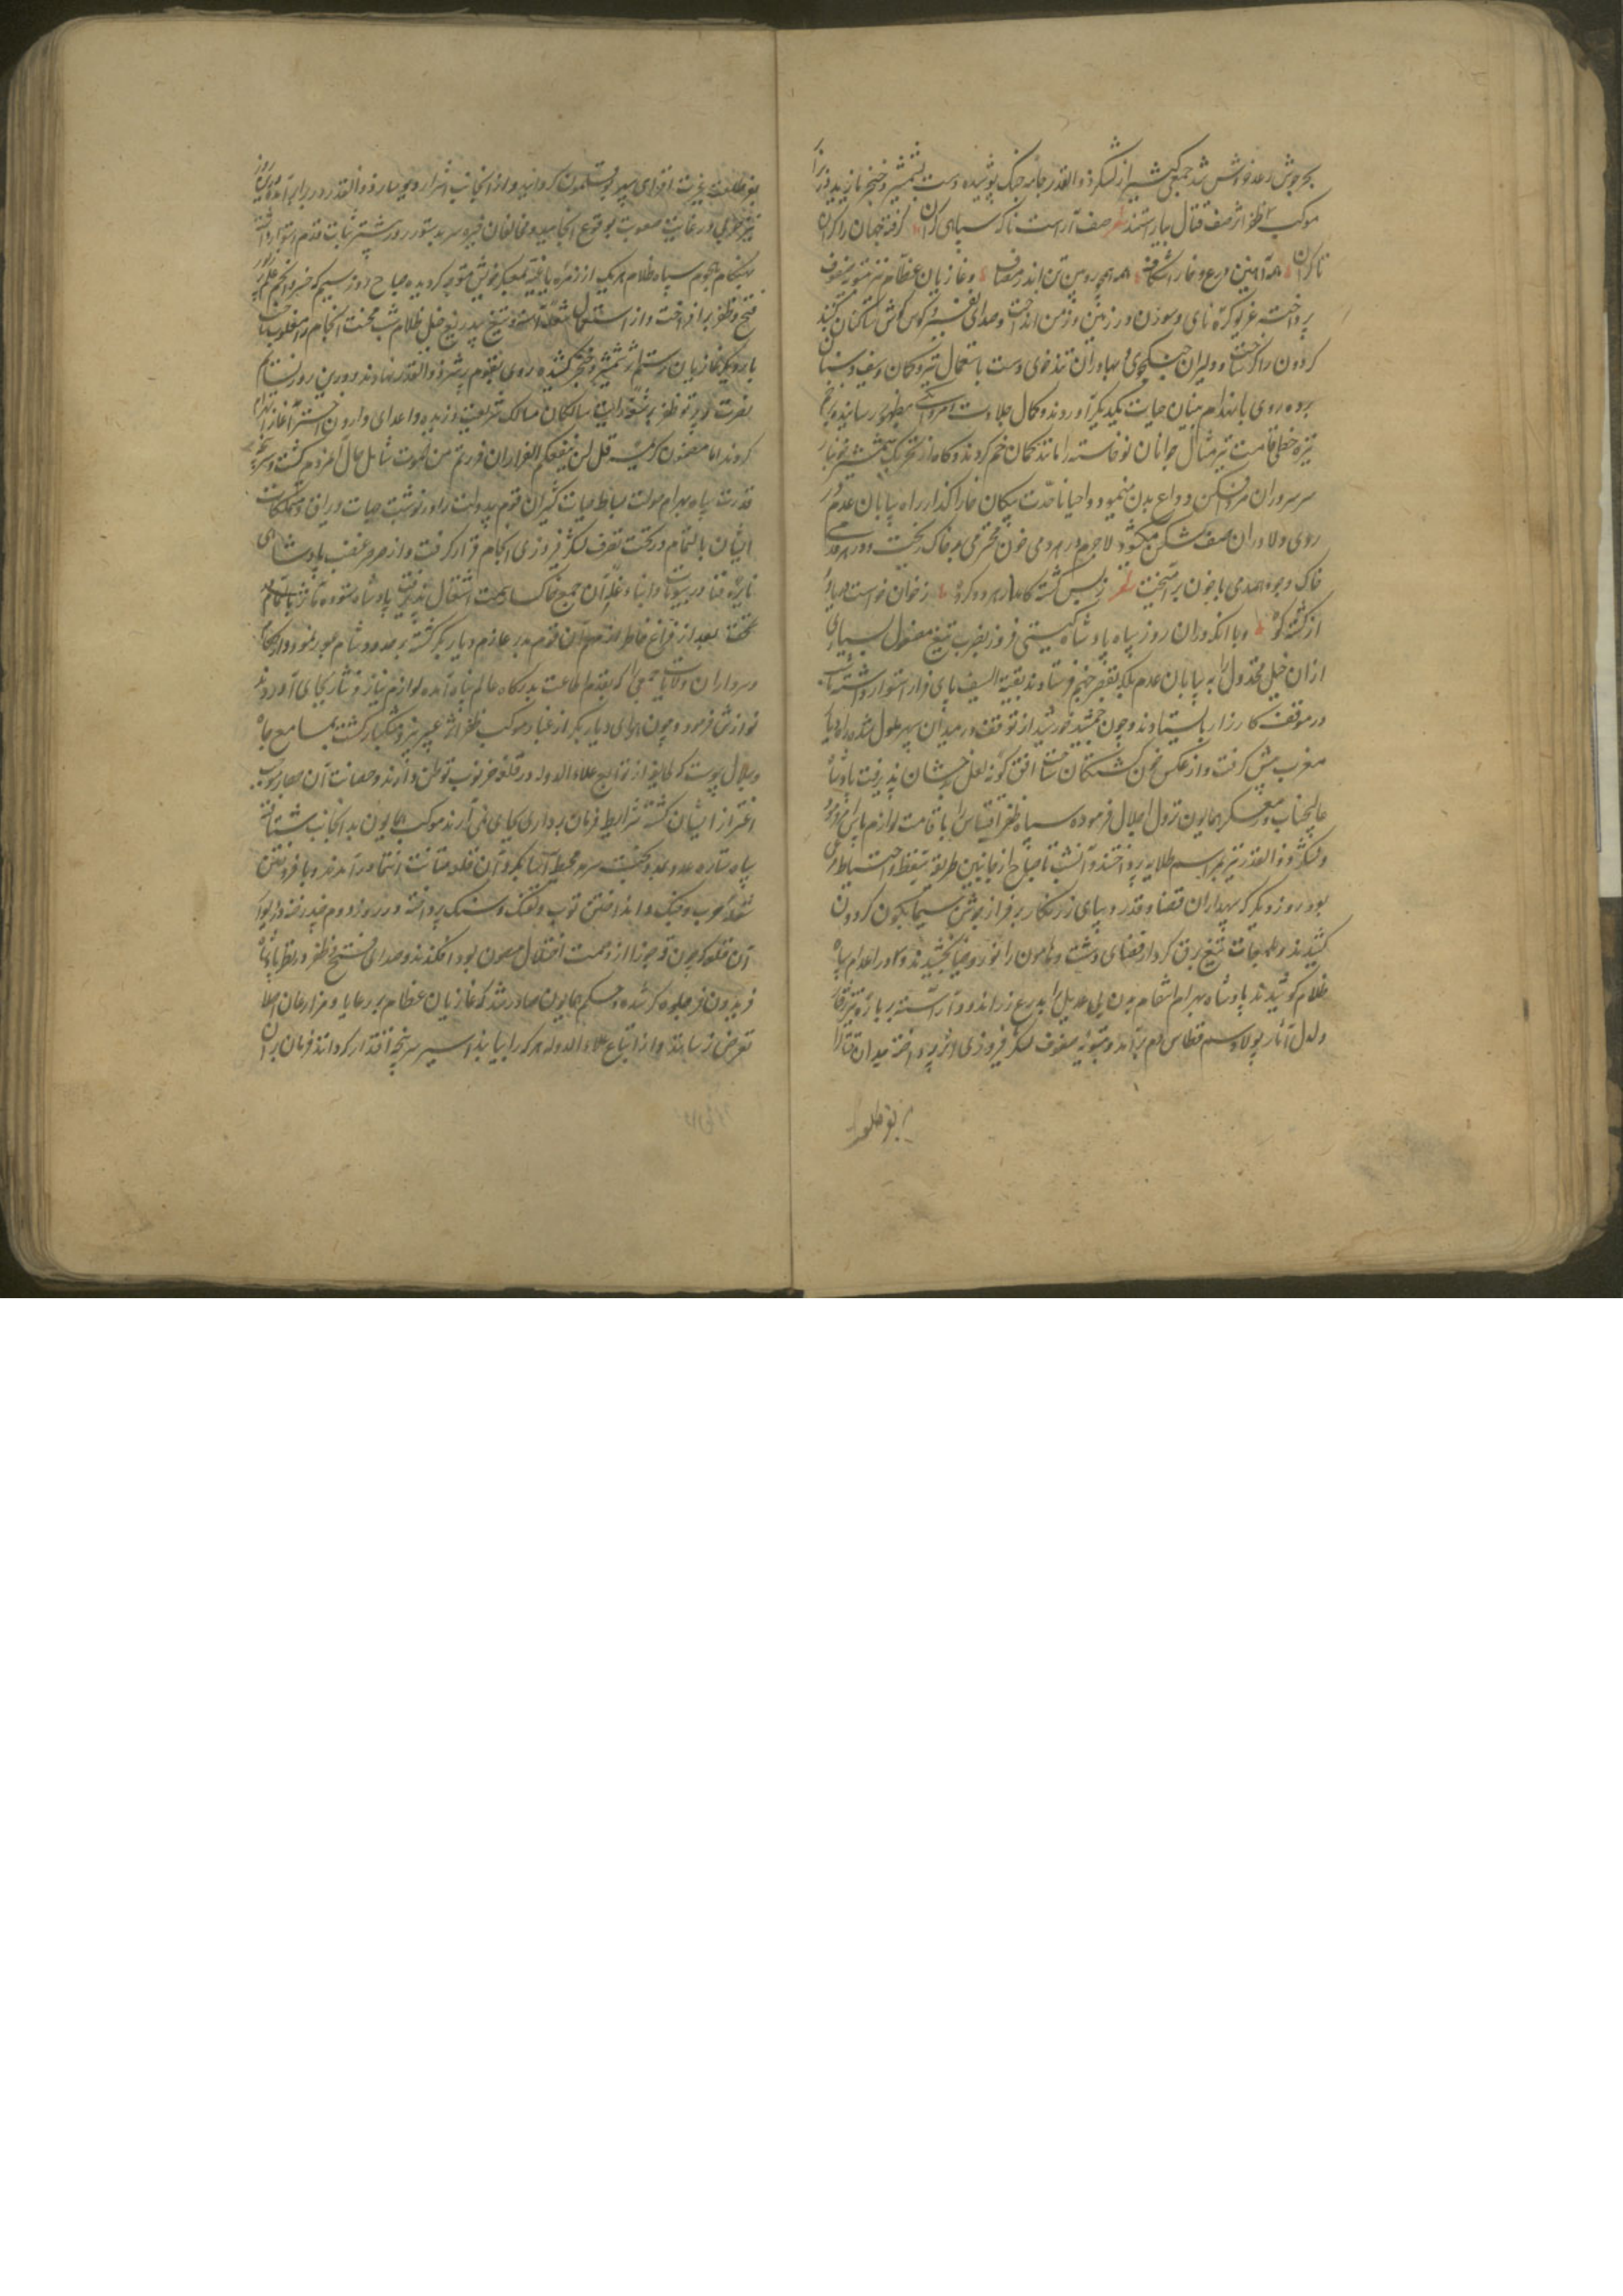 بجوش رعد خروش شد جمعی کثیر از لشکر ذوالقدر جامه جنگ پوشیده دست بشمشیر و خنجر یازیدند در برابر
موکب ظفر اثر صف قتال بیاراستند شعر صف آراست ناکه سپاهی کران کرفته جهان را کران
تا کران همه آهنین درع و خارا شکاف همه همچو رویین تن اندر مصاف و غازیان عظام نیز بتسویه صفوف
پرداخته غریو کره نای و سورن در زمین و زمن انداخت و صدای نفیر و کوس کوش ساکنان کنبد
کردون را کر ساخت و دلیران جنکجوی و بهادران تندخوی دست باستعمال تیر و کمان و سیف و سنان
برده روی بانهدام بنیان حیات یکدیکر آوردند و کمال جلادت و مردانکی بظهور رسانیده
نیزه خطی قامت تیر مثال جوانان نوخاسته را مانند کمان خم کردند و کاه از تحریک شمشیر خونبار
سر سروران مرد افکن وداع بدن مینمود و احیانا حدت پیکان خارا کذار راه بیابان عدم بر
روی دلاوران صف شکن میکشود لاجرم در هر دمی خون محترمی بر خاک ریخت و در هر قدمی
خاک وجود همدمی با خون برآمیخت شعر ز بس کشته کامد ز هر دو کروه ز خون خواست دریا و
از کشته کوه و با آنکه در آن روز سپاه پادشاه کیتی فروز بضرب تیغ مصقول بسیاری
از آن خیل مخذول را به بیابان عدم بلکه بقعر جهنم فرستادند بقیة السیف پای قرار استوار داشته
در موقف کارزار بایستادند و چون جمشید خورشید از توقف در میدان سپهر ملول شده راه دیار
مغرب پیش کرفت و از عکس خون کشتکان ساحت افق کونه لعل بدخشان پذیرفت پادشاه
عالیجناب در معسکر همایون نزول اجلال فرموده سپاه ظفر اقتباس را باقامت لوازم پاس امر فرمود
و لشکر ذوالقدر نیز بمراسم طلایه پرداختند و آن شب تا صباح از جانبین طریقه تیقظ و احتیاط مرعی
بود روز دیکر که سپهداران قضا و قدر دیبای زرنکار بر فراز جوشن سیماب کون کردون
کشیدند و بلمعات تیغ برق کردار فضای دشت و هامون را نور و ضیا بخشیدند و در اعدام سپاه
ظلام کوشیدند پادشاه بهرام انتقام بدن بی عدیل را بدرع زر اندود آراسته بر باره تیزرفتار
دلدل آثار پولاد سم قطاس دم برآمد و بتسویه صفوف لشکر فیروزی اثر پرداخته میدان قتال را
بنور طلعت
بنور طلعت غیرت افزای سپهر بوقلمون کردانید و از آنجانب اشرار دیو سار ذوالقدر در برابر آمده آن روز
نیز حربی در غایت صعوبت بوقوع انجامید و مخالفان خیره سر بدستور روز پیشتر ثابت قدم استوار داشته
بهنکام هجوم سپاه ظلام هر یک از زمره باغیه بمعسکر خویش متوجه کردیده صباح روز سیم که خسرو انجم علم نور
فتح و ظفر برافراخت و از استعمال شعله آتش تیغ بیدریغ خیل ظلام شب محنت انجام را مغلوب ساخت
بار دیکر غازیان رستم اثر شمشیر و خنجر کشیده روی بقوم پر شر ذوالقدر نهادند و درین روز نسایم
نصرت و پرتو ظفر بر شقه رایات سالکان مسالک شریعت وزیده و اعدای وارون اختر آغاز انهزام
کردند اما مضمون کریمه قل لن ینفعکم الفرار ان فررتم من الموت شامل حال آن مردم کشت و سرپنجه
قدرت سپاه بهرام صولت بساط حیات کثیری از آن قوم بیدولت را در نوشت جهات و یراق و تملکات
ایشان بالتمام در تحت تصرف لشکر فیروزی انجام قرار کرفت و از صرصر غضب پادشاهی
نایره فنا در بیوتات و ابنیه و غلات آن جمع خاکسار سمت اشتعال پذیرفت پادشاه ستوده مآثر
بعد از فراغ خاطر از مهم آن قوم بد بر عازم دیار بکر کشته بر حدود شام عبور نمود و حکام
و سرداران ولایات جمعی را که بقدم اطاعت بدرکاه عالم پناه آمده لوازم نیاز و نثار بجای آوردند
نوازش فرمود و چون هوای دیار بکر از غبار موکب ظفر اثر عبیر بیز و مشکبار کشت بمسامع جاه
و جلال پیوست که طایفه از توابع علاء الدوله در قلعه خرتوب توطن دارند و حصانت آن حصار موجب
اغترار ایشان کشته شرایط فرمان برداری بجای نمی آرند موکب همایون بدانجانب شتافته
سپاه ستاره عدد محیط آسا بکرد آن قلعه متانت انتما درآمدند و بافروختن
شعله حرب و جنک و انداختن توپ و تفنک و سنک پرداخته در روز دوم
آن قلعه که چون برج جوزا از وصمت اختلال مصون بود افکندند و صدای فتح و ظفر در نظر پادشاه
فریدون فر جلوه کر شده و حکم همایون صادر شد که غازیان عظام بر رعایا و مزارعان اصلا
تعرض نرسانند و از اتباع علاء الدوله هر که را بیابند اسیر سرپنجه اقتدار کردانند فرمان بران